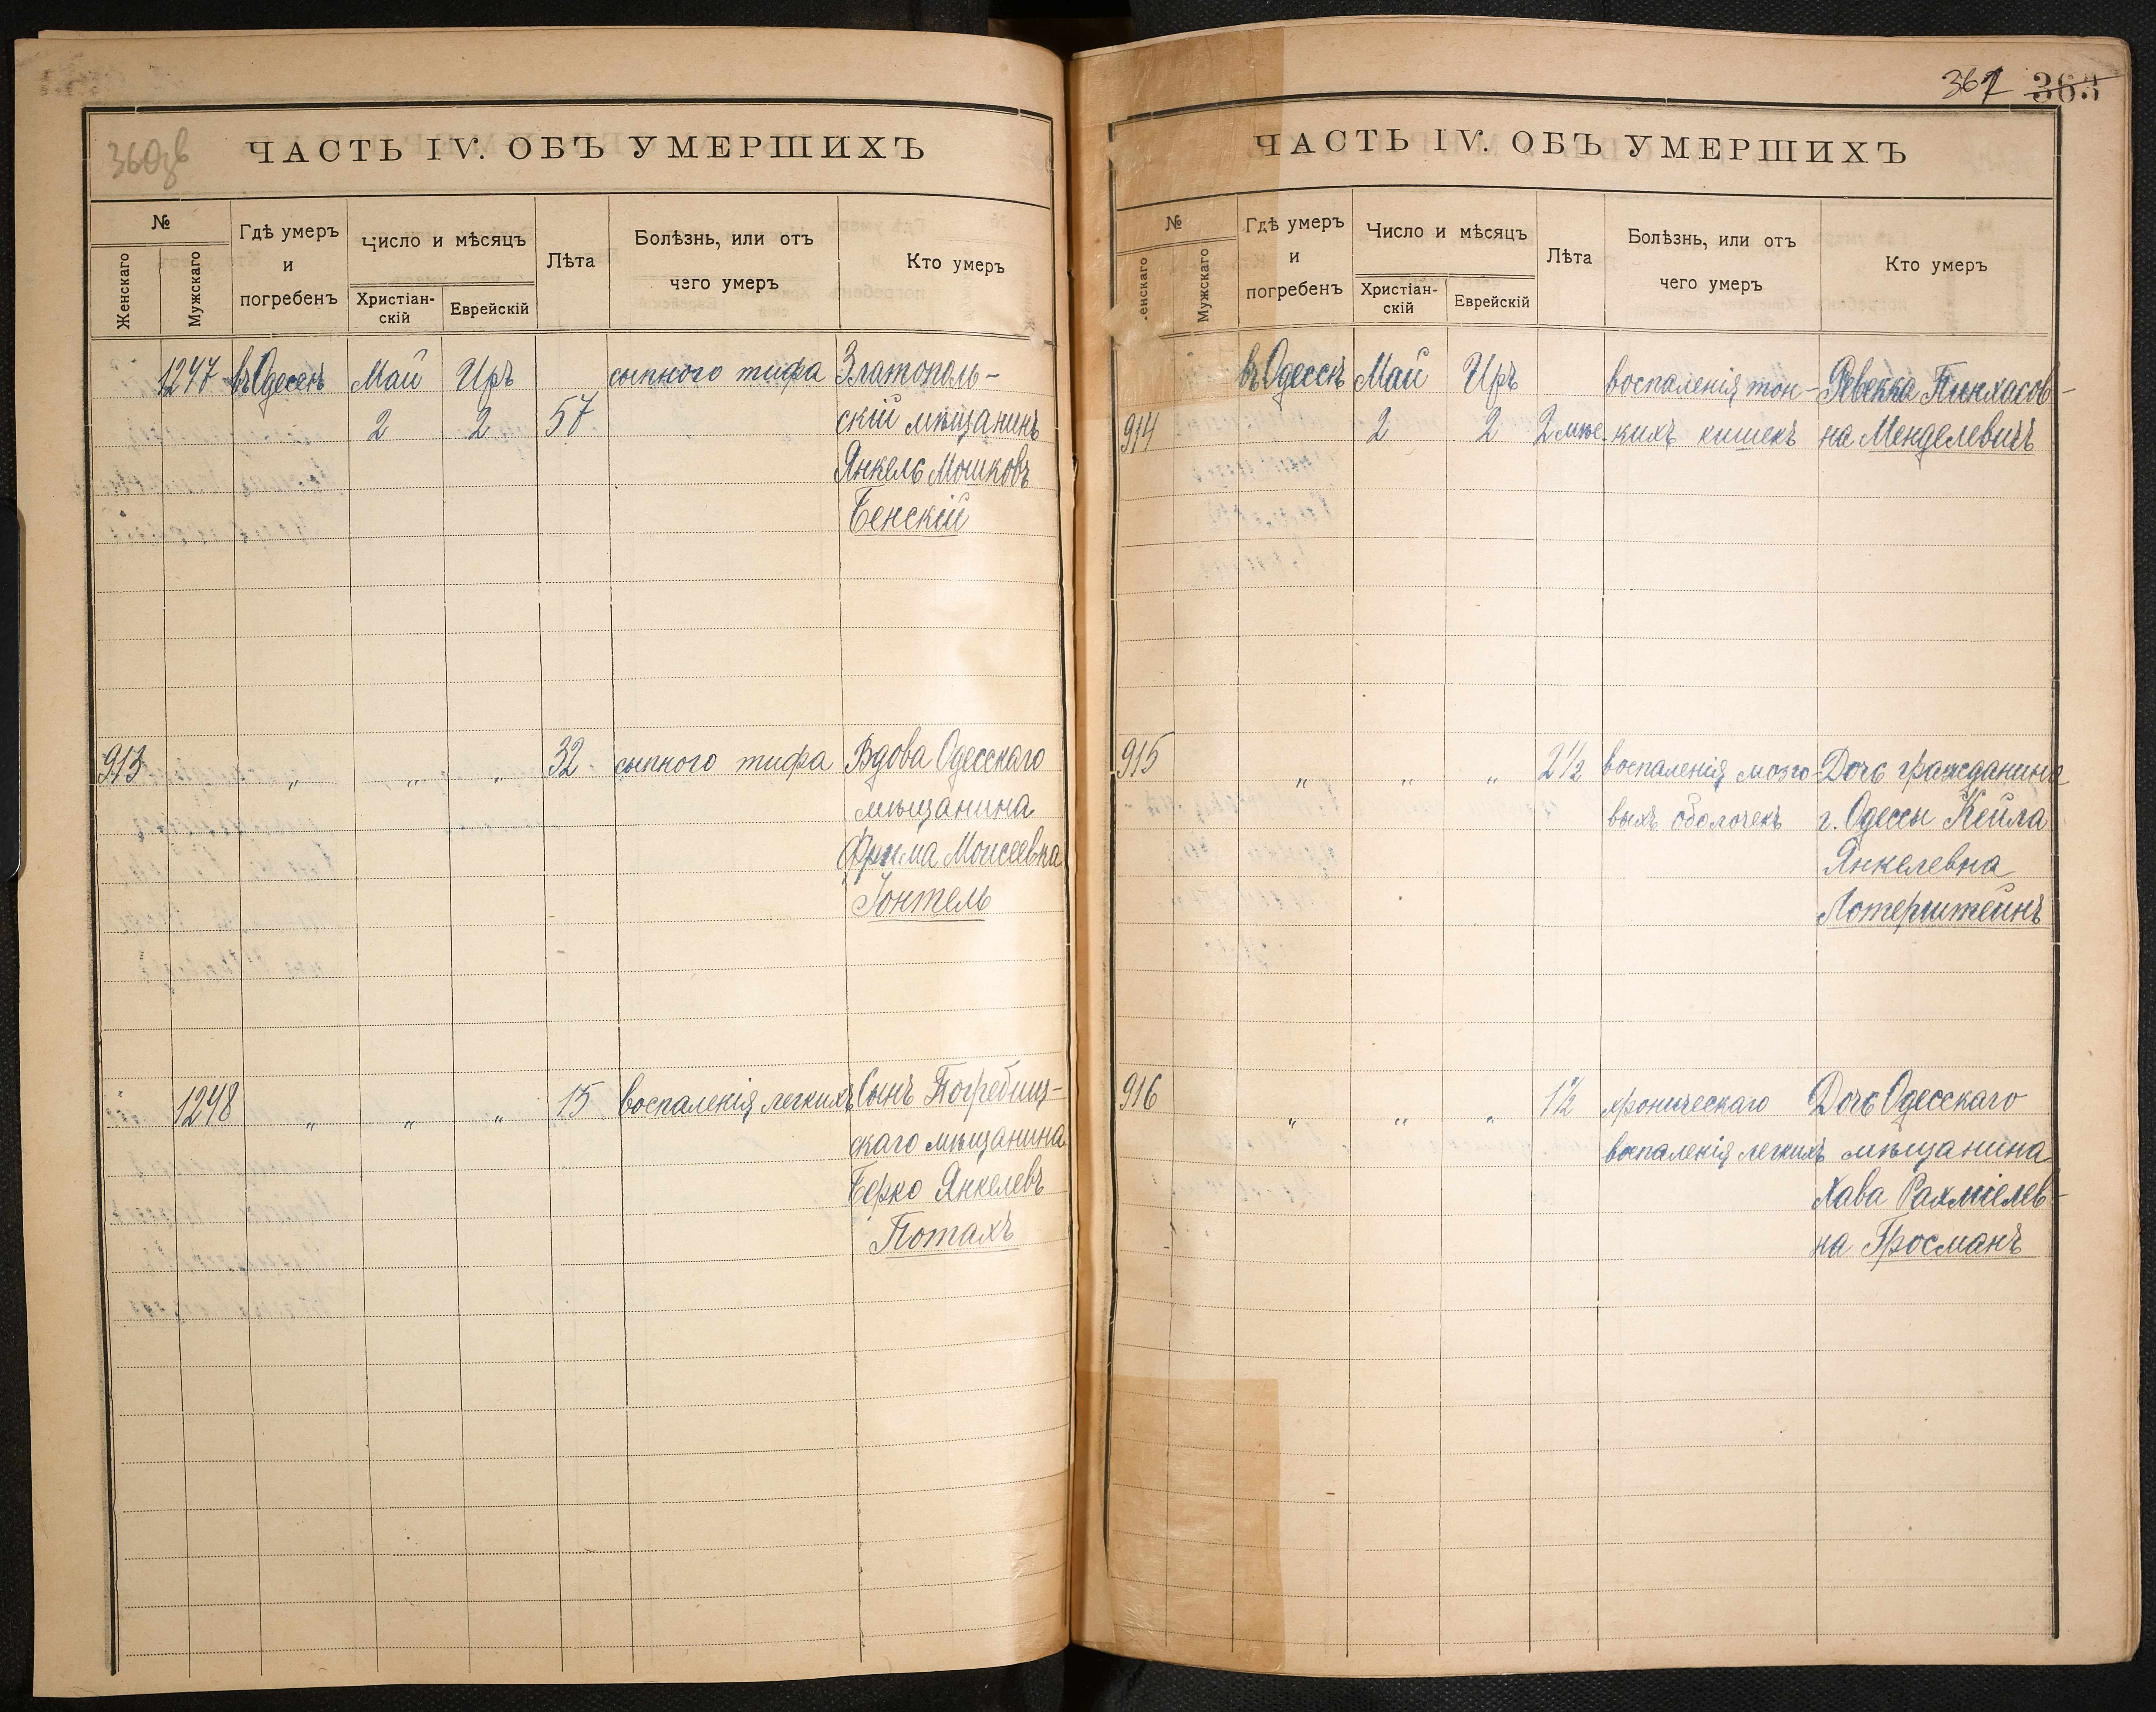 360 зв
ЧАСТЬ IV. ОБЪ УМЕРШИХЪ
№
Женскаго
Мужскаго
Гдѣ умеръ
и
погребенъ
Число и мѣсяцъ
Христіан-
скій
Еврейскій
Лѣта
Болѣзнь, или отъ
чего умеръ
Кто умеръ
1247 въ Одессѣ Май Иръ сыпного тифа Златополь-
2 2 57 скій мѣщанинъ
Янкель Мошковъ
Бенскій
913 „ „ „ 32 сыпного тифа Вдова Одесскаго
мѣщанина
Фрима Моисеевна
Гонтель
1248 „ „ „ 15 воспаленія легкихъ Сынъ Погребищ-
скаго мѣщанина
Берко Янкелевъ
Потахъ
361 363
ЧАСТЬ IV. ОБЪ УМЕРШИХЪ
№
енскаго
Мужскаго
Гдѣ умеръ
и
погребенъ
Число и мѣсяцъ
Христіан-
скій
Еврейскій
Лѣта
Болѣзнь, или отъ
чего умеръ
Кто умеръ
въ Одессѣ Май Иръ воспаленія тон- Ревекка Пинхасов-
914 2 2 2 мѣс. кихъ кишекъ на Менделевичъ
915 „ „ „ 2 1/2 воспаленія мозго- Дочь гражданина
выхъ оболочекъ г. Одессы Кейла
Янкелевна
Лотерштейнъ
916 „ „ „ 1 1/2 хроническаго Дочь Одесскаго
воспаленія легкихъ мѣщанина
Хава Рахміелев-
на Гросманъ